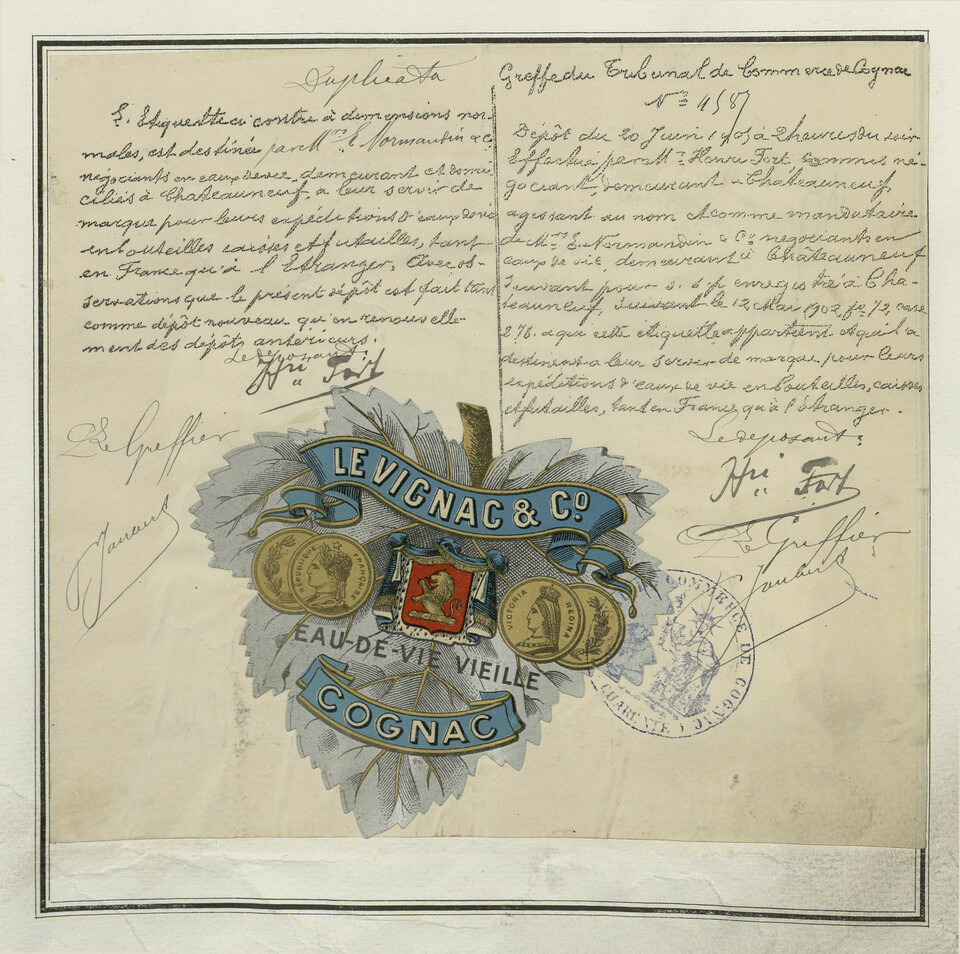 Duplicata
L'Etiquette ci contre à dimensions nor-
males, est destinée par Mrs E. Normandin & C.
négociants en eaux de vie, demeurant et domi-
ciliés à Chateauneuf, a leur servir de
marque pour leurs expéditions d'eaux de vie
en bouteilles caisses et futailles, tant
en France qu'à l'Etranger. Avec ob-
servations que le présent dépôt est fait tant
comme dépôt nouveau qu'en renouvelle-
ment des dépôts antérieurs.
Le déposant:
Hri Fort
Le Greffier
Jaubert
Greffe du Tribunal de Commerce de Cognac
Dépôt du 20 Juin 1905 à 2 heures du soir
Effectué par Mr Henri Fort, commis né-
gociant, demeurant à Châteauneuf,
agissant au nom et comme mandataire
de Mrs E. Normandin & Co négociants en
eaux de vie, demeurant à Châteauneuf
suivant pour s. s/p enregistré à Cha-
teauneuf, suivant le 12 Mai 1902, fo 72, case
276. a qui cette étiquette appartient et qu'il a
destinent a leur servir de marque pour leurs
expéditions d'eaux de vie en bouteilles, caisses
et futailles, tant en France qu'à l'étranger.
Le déposant:
Hri Fort
Le Greffier
Jaubert
LE VIGNAC & Co
RÉPUBLIQUE FRANÇAISE
VICTORIA REGINA
EAU-DE-VIE VIEILLE
COGNAC
COMMERCE DE COGNAC
CHARENTE